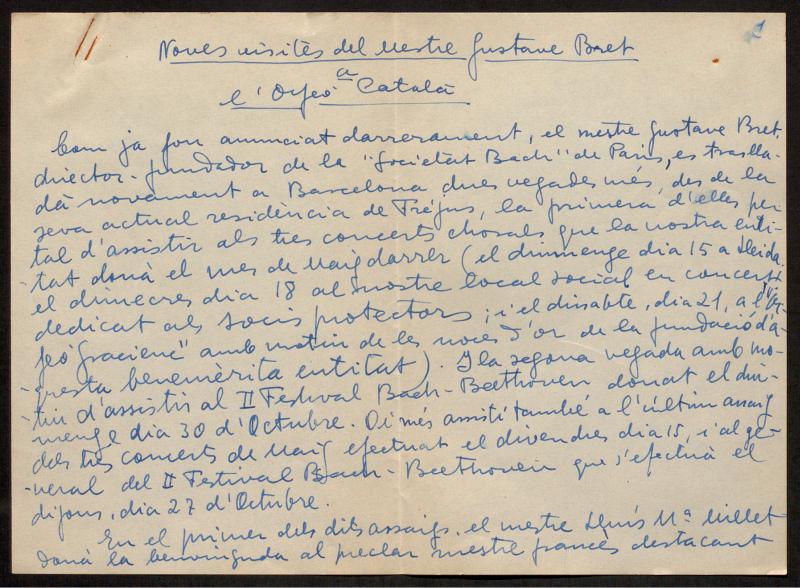 Noves visites del Mestre Gustave Bret
a
l'Orfeó Català
Com ja fou anunciat darrerament, el mestre Gustave Bret,
director-fundador de la "Societat Bach" de París, es trasllá-
dà novament a Barcelona dues vegades més, des de la
seva actual residència de Fréjus, la primera d'elles per
tal d'assistir als tres concerts chorals que la nostra enti-
tat donà el mes de Maig darrer (el diumenge dia 15 a Lleida,
el dimecres dia 18 al nostre local social en concert
dedicat als socis protectors; i el dissabte, dia 21, a l'"Or-
feó Gracienc" amb motiu de les noces d'or de la fundació d'a-
questa benemèrita entitat). I la segona vegada amb mo-
tiu d'assistir al II Festival Bach-Beethoven donat el diu-
menge dia 30 d'Octubre. Oi més assistí també a l'últim assaig
dels tres concerts de Maig efectuat el divendres dia 15, i al ge-
neral del II Festival Bach-Beethoven que s'efectuà el
dijous, dia 27 d'Octubre.
En el primer dels dits assaigs, el mestre Lluís Mª Millet
donà la benvinguda al preclar mestre francès destacant